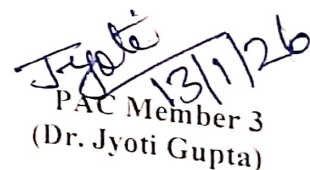 Jyoti
13/1/26
PAC Member 3
(Dr. Jyoti Gupta)